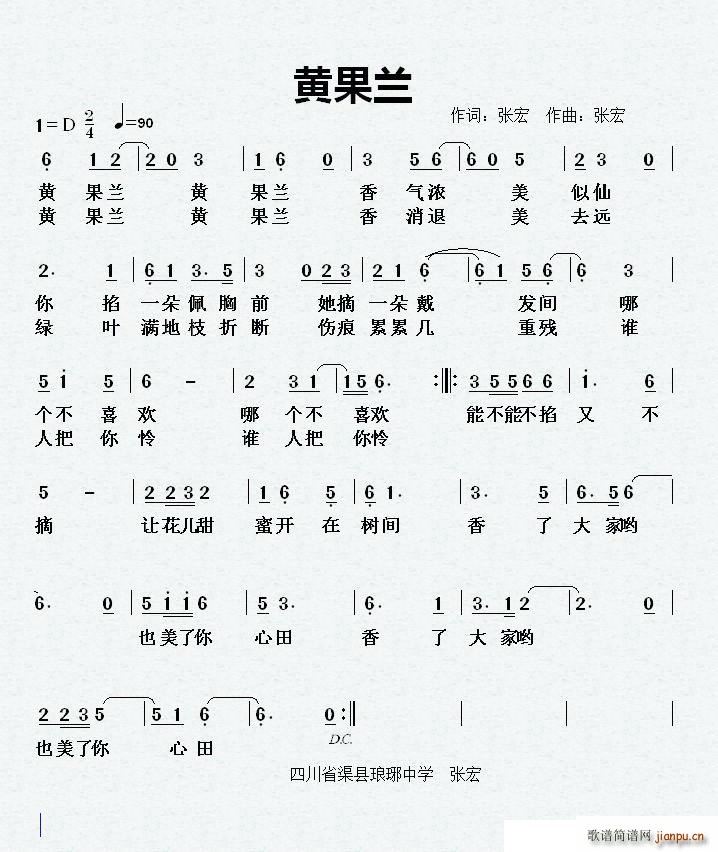 黄果兰
1=D 2/4 ♩=90 作词：张宏 作曲：张宏
6 1 2 | 2 0 3 | 1 6 0 | 3 5 6 | 6 0 5 | 2 3 0 |
黄 果兰 黄 果兰 香 气浓 美 似仙
黄 果兰 黄 果兰 香 消退 美 去远
2. 1 | 6 1 3. 5 | 3 0 2 3 | 2 1 6 | 6 1 5 6 | 6 3 |
你 掐 一朵 佩 胸 前 她摘 一朵 戴 发间 哪
绿 叶 满地 枝 折 断 伤痕 累累 几 重残 谁
5 1 5 | 6 - | 2 3 1 | 1 5 6. :||: 3 5 5 6 6 | 1. 6 |
个不 喜 欢 哪 个不 喜欢 能不能不掐 又 不
人把 你 怜 谁 人把 你怜
5 - | 2 2 3 2 | 1 6 5 | 6 1. | 3. 5 | 6. 5 6 |
摘 让花儿甜 蜜开 在 树间 香 了 大 家哟
6. 0 | 5 1 1 6 | 5 3. | 6. 1 | 3. 1 2 | 2. 0 |
也美了你 心田 香 了 大 家哟
2 2 3 5 | 5 1 6 | 6. 0 :||
也美了你 心 田
D.C.
四川省渠县琅琊中学 张宏
歌谱简谱网 jianpu.cn